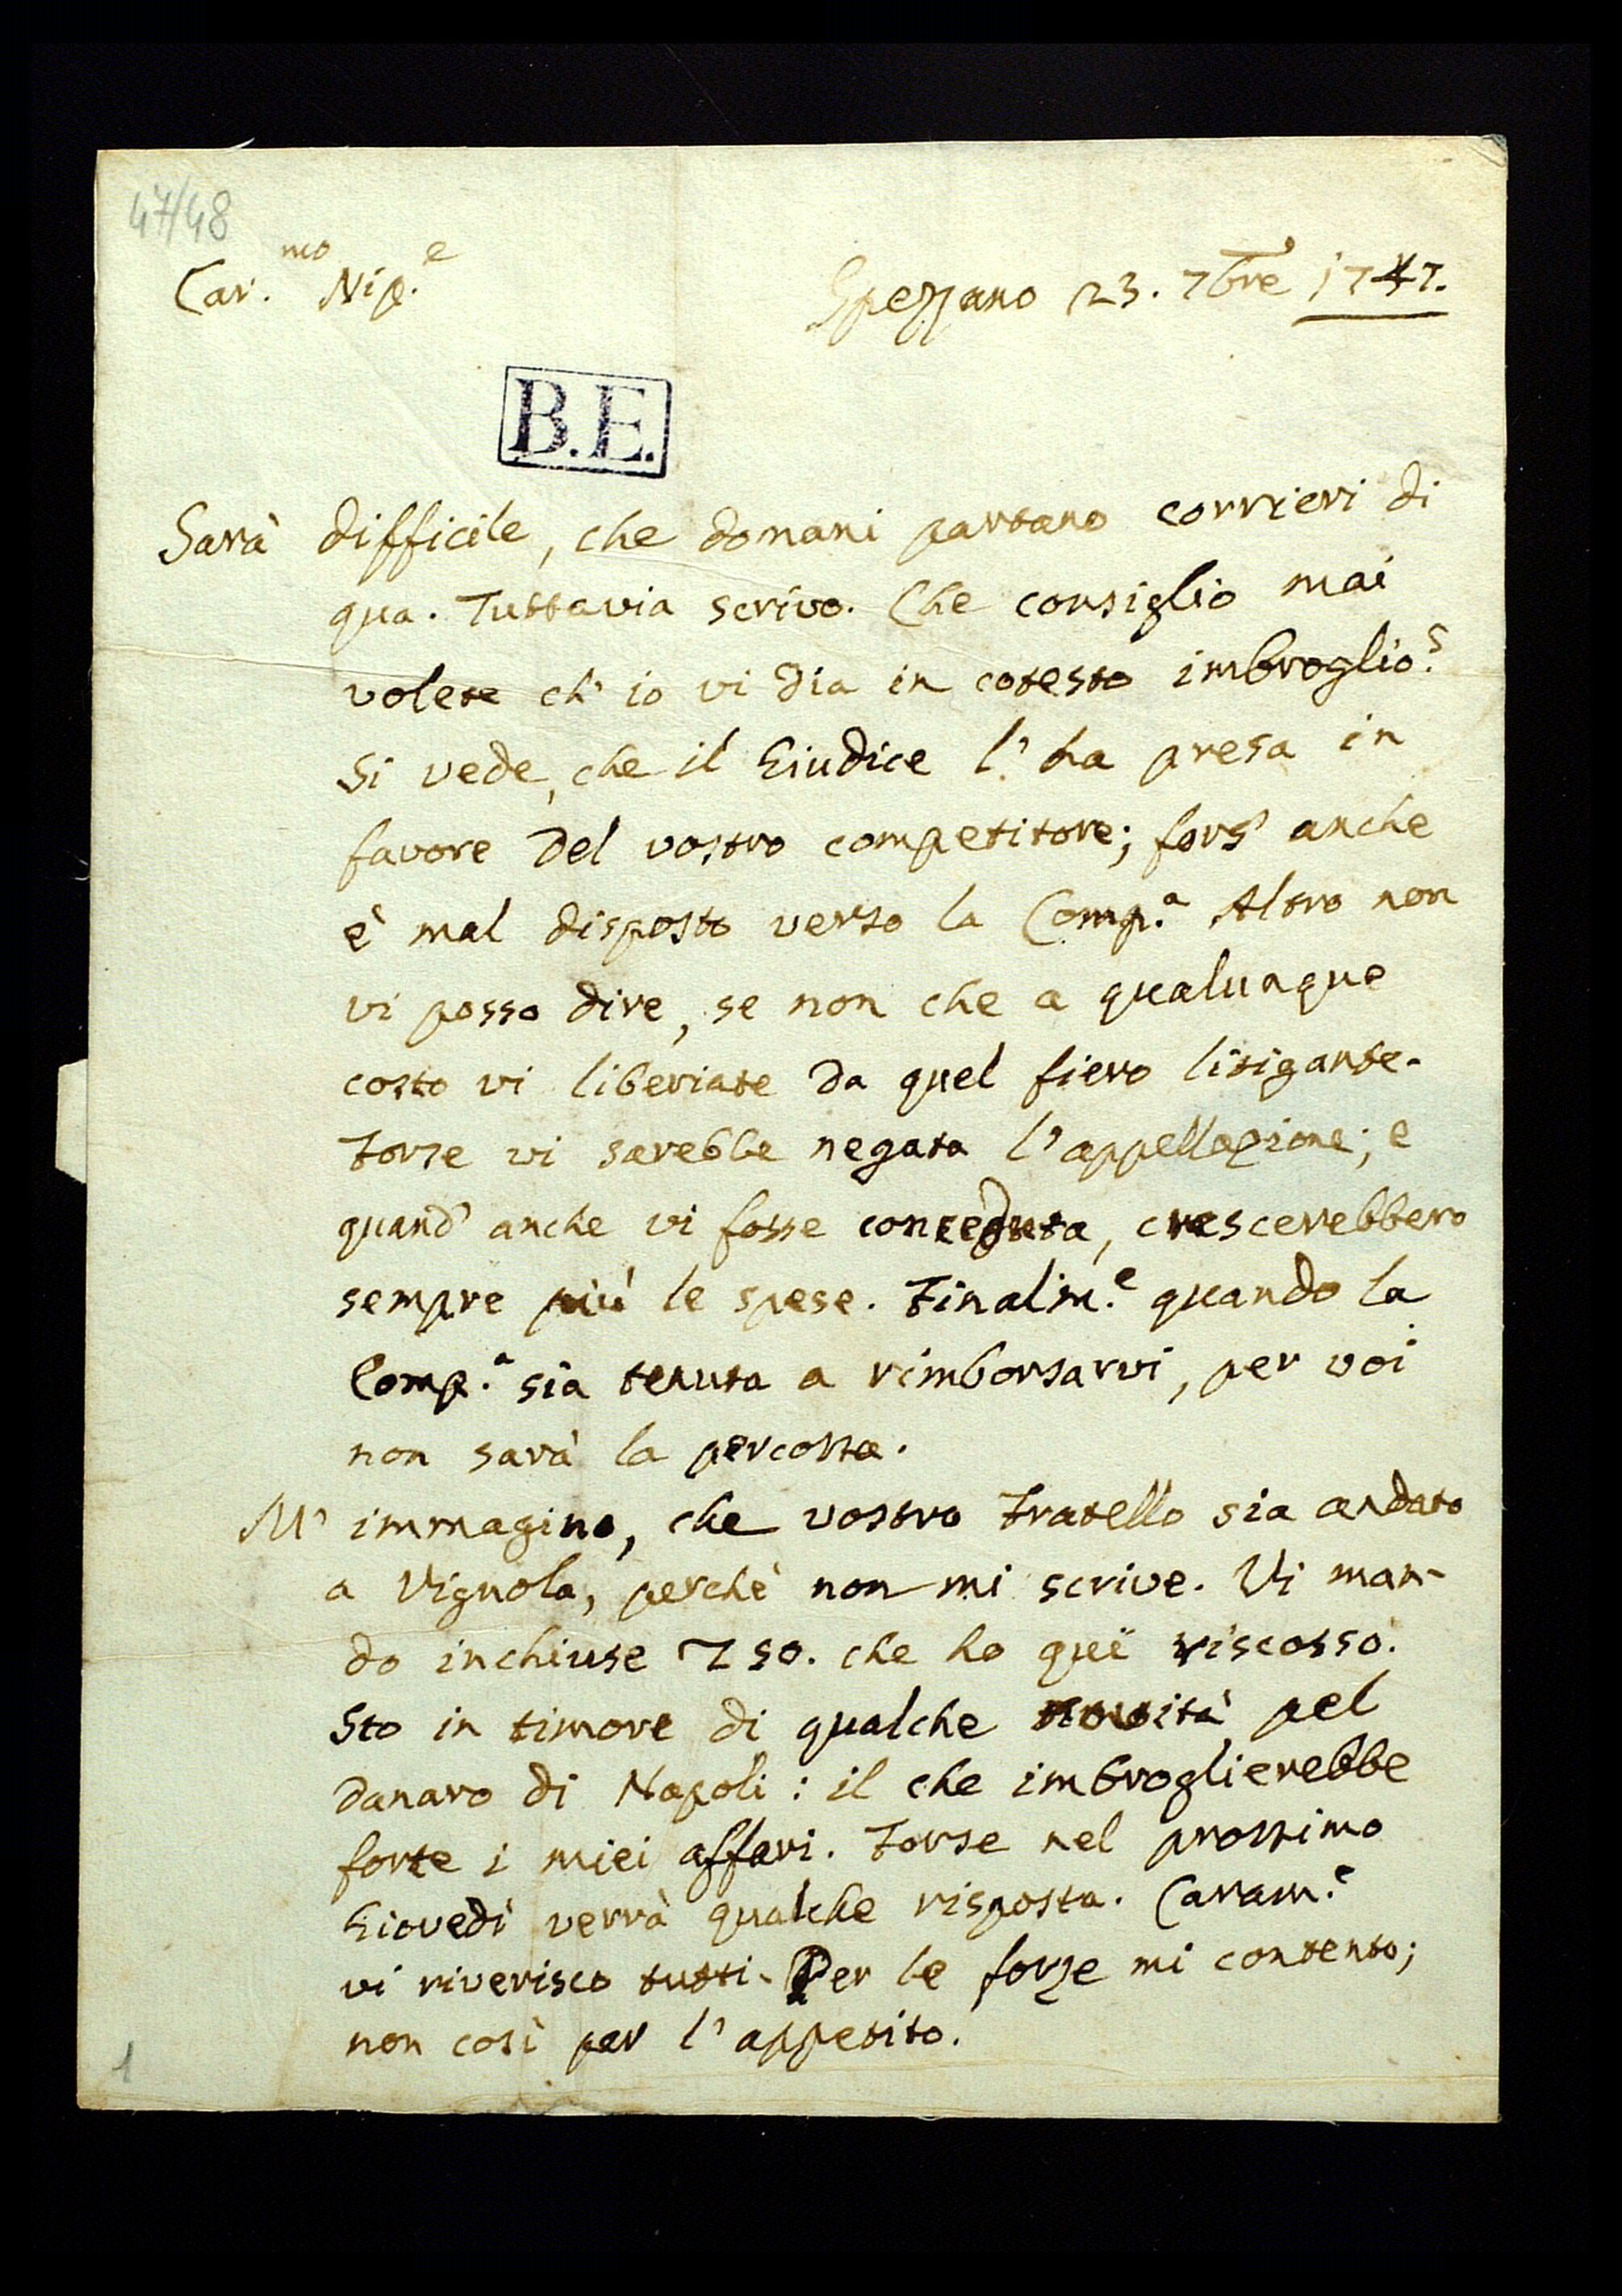 47/48
Car.mo Nip.e
Spezzano 23. 7bre 1747.
B.E.
Sarà difficile, che domani partano corrieri di
qua. Tuttavia scrivo. Che consiglio mai
volete ch' io vi dia in cotesto imbroglio?
Si vede, che il Giudice l' ha presa in
favore del vostro competitore; fors' anche
è mal disposto verso la Comp.a Altro non
vi posso dire, se non che a qualunque
costo vi liberiate da quel fiero litigante.
Forse vi sarebbe negata l' appellazione; e
quand' anche vi fosse conceduta, crescerebbero
sempre più le spese. Finalm.e quando la
Comp.a sia tenuta a rimborsarvi, per voi
non sarà la percossa.
M' immagino, che vostro Fratello sia andato
a Vignola, perchè non mi scrive. Vi man-
do inchiuse L 50. che ho quì riscosso.
Sto in timore di qualche novità pel
danaro di Napoli: il che imbroglierebbe
forte i miei affari. Forse nel prossimo
Giovedì verrà qualche risposta. Caram.e
vi riverisco tutti. Per le forze mi contento;
non così per l' appetito.
1